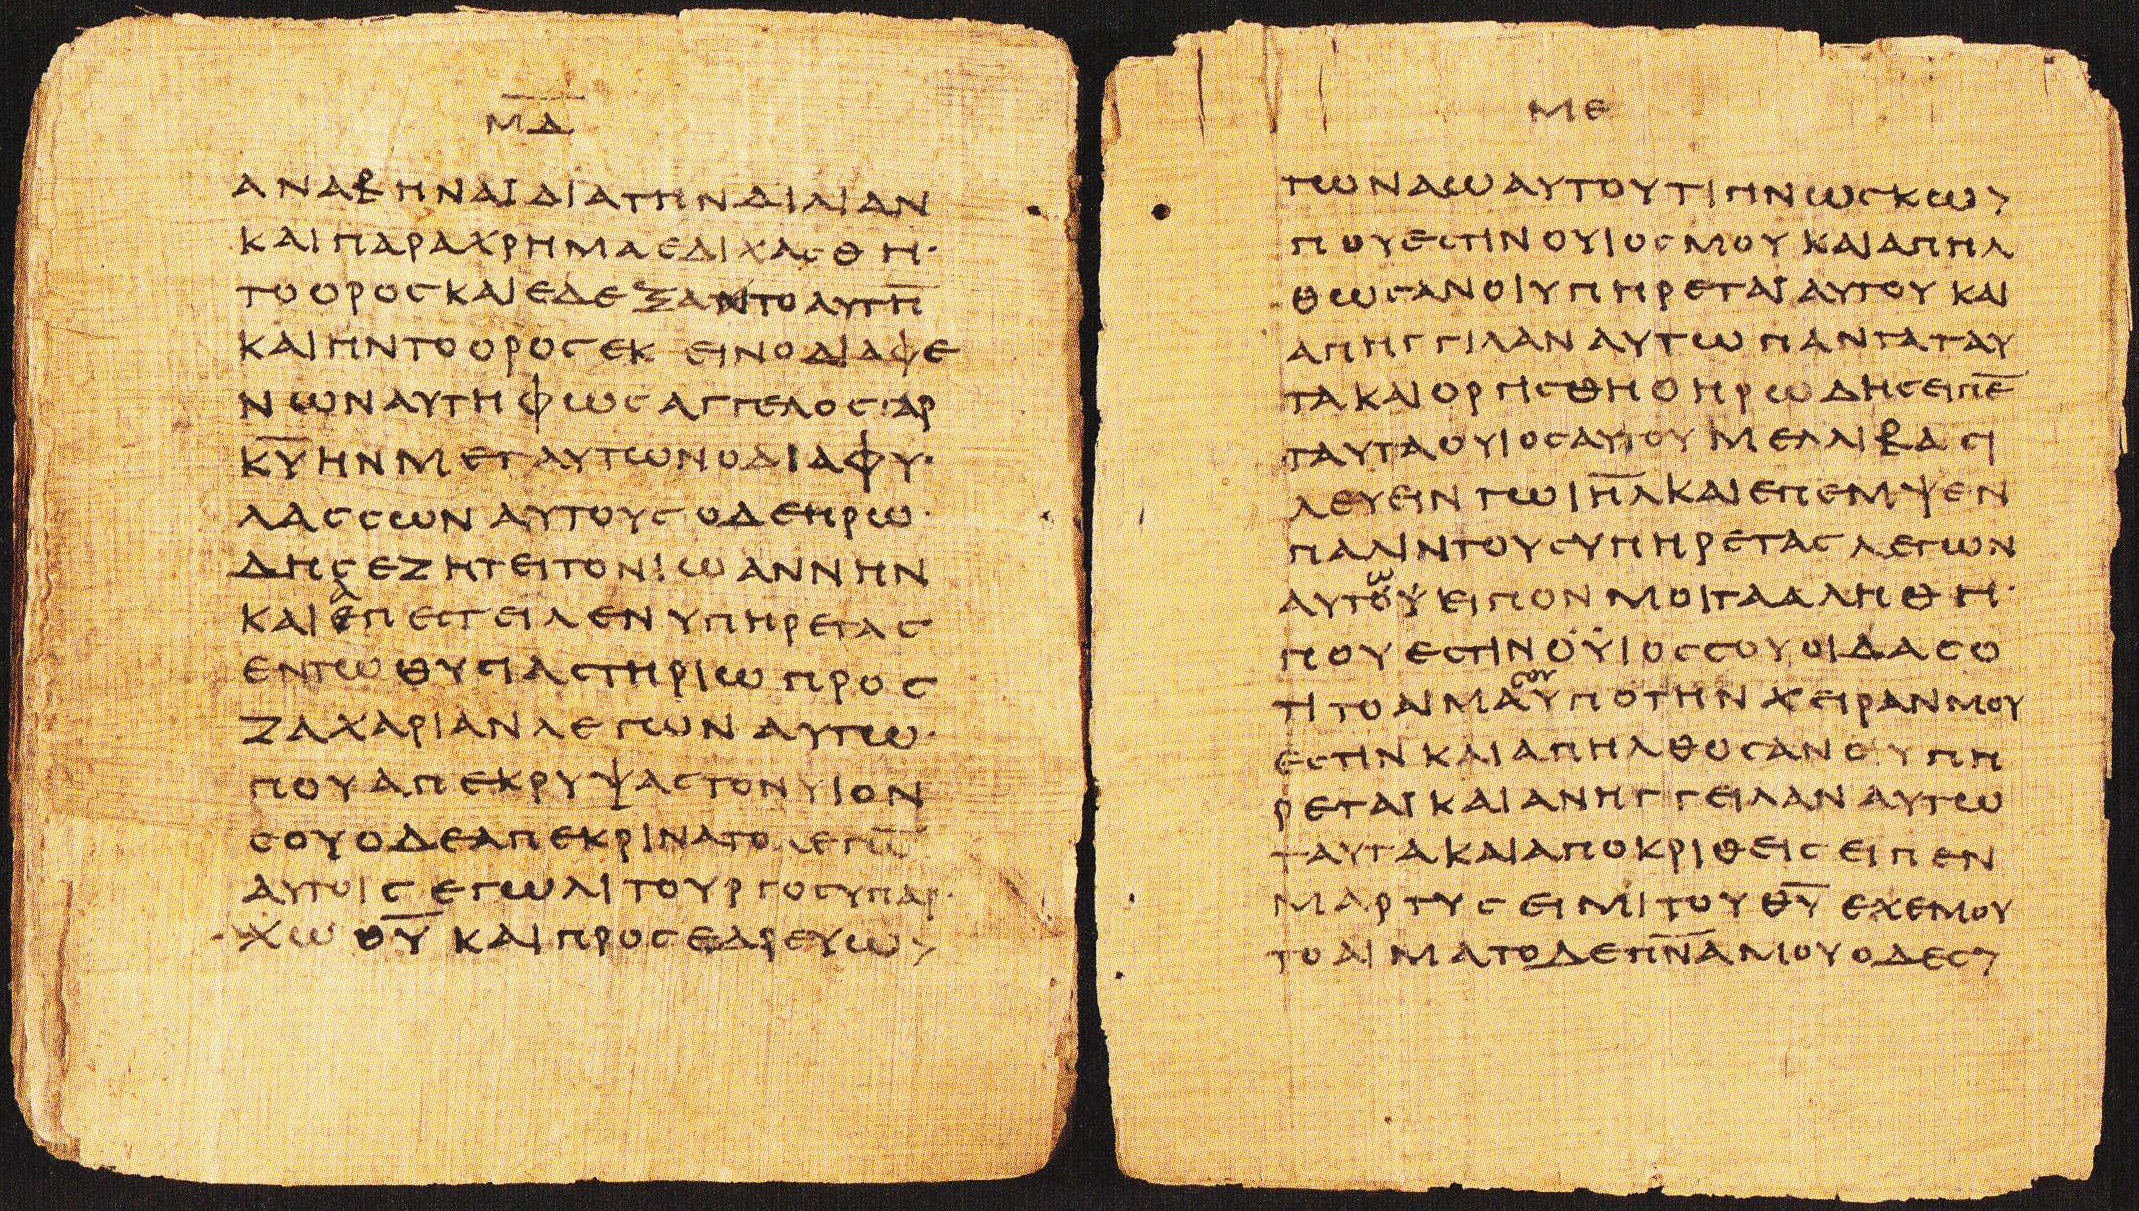 ΜΔ
ΑΝΑΒΗΝΑΪΔΙΑΤΗΝΔΙΛΙΑΝ
ΚΑΙΠΑΡΑΧΡΗΜΑΕΔΙΧΑΣΘΗ·
ΤΟΟΡΟΣΚΑΙΕΔΕΞΑΝΤΟΑΥΤΗ̅
ΚΑΙΗΝΤΟΟΡΟΣΕΚΕΙΝΟΔΙΑΦΕ
ΝΩΝΑΥΤΗΦΩΣΑΓΓΕΛΟΣΓΑΡ
Κ̅Υ̅ΗΝΜΕΤΑΥΤΩΝΟΔΙΑΦΥ·
ΛΑΣΣΩΝΑΥΤΟΥΣΟΔΕΗΡΩ·
ΔΗΣΕΖΗΤΕΙΤΟΝΪΩΑΝΝΗΝ
ΚΑΙΑΠΕΣΤΕΙΛΕΝΥΠΗΡΕΤΑΣ
ΕΝΤΩΘΥΣΙΑΣΤΗΡΙΩΠΡΟΣ
ΖΑΧΑΡΙΑΝΛΕΓΩΝΑΥΤΩ·
ΠΟΥΑΠΕΚΡΥΨΑΣΤΟΝΥΙΟΝ
ΣΟΥΟΔΕΑΠΕΚΡΙΝΑΤΟΛΕΓΩ̅
ΑΥΤΟΙΣΕΓΩΛΙΤΟΥΡΓΟΣΥΠΑΡ·
ΧΩΘ̅Υ̅ΚΑΙΠΡΟΣΕΔΡΕΥΩ>
ΜΕ
ΤΩΝΑΩΑΥΤΟΥΤΙΓΙΝΩΣΚΩ>
ΠΟΥΕΣΤΙΝΟΥΙΟΣΜΟΥΚΑΙΑΠΗΛ
ΘΩΣΑΝΟΙΥΠΗΡΕΤΑΪΑΥΤΟΥΚΑΙ
ΑΠΗΓΓΙΛΑΝΑΥΤΩΠΑΝΤΑΤΑΥ
ΤΑΚΑΙΟΡΓΙΣΘΗΟΗΡΩΔΗΣΕΙΠΕ̅
ΤΑΥΤΑΟΥΙΟΣΑΥΤΟΥΜΕΛΛΙΒΑΣΙ
ΛΕΥΕΙΝΤΩΙ̅Η̅Λ̅ΚΑΙΕΠΕΜΨΕΝ
ΠΑΛΙΝΤΟΥΣΥΠΗΡΕΤΑΣΛΕΓΩΝ
ΑΥΤΟΥ`Ω´ΕΙΠΟΝΜΟΙΤΑΑΛΗΘΗ·
ΠΟΥΕΣΤΙΝΟΫΙΟΣΣΟΥΟΙΔΑΣΟ
ΤΙΤΟΑΙΜΑ`ΣΟΥ´ΥΠΟΤΗΝΧΕΙΡΑΝΜΟΥ
ΕΣΤΙΝΚΑΙΑΠΗΛΘΟΣΑΝΟΙΥΠΗ
ΡΕΤΑΪΚΑΙΑΝΗΓΓΕΙΛΑΝΑΥΤΩ
ΤΑΥΤΑΚΑΙΑΠΟΚΡΙΘΕΙΣΕΙΠΕΝ
ΜΑΡΤΥΣΕΙΜΙΤΟΥΘ̅Υ̅ΕΧΕΜΟΥ
ΤΟΑΙΜΑΤΟΔΕΠ̅Ν̅Α̅ΜΟΥΟΔΕΣ>